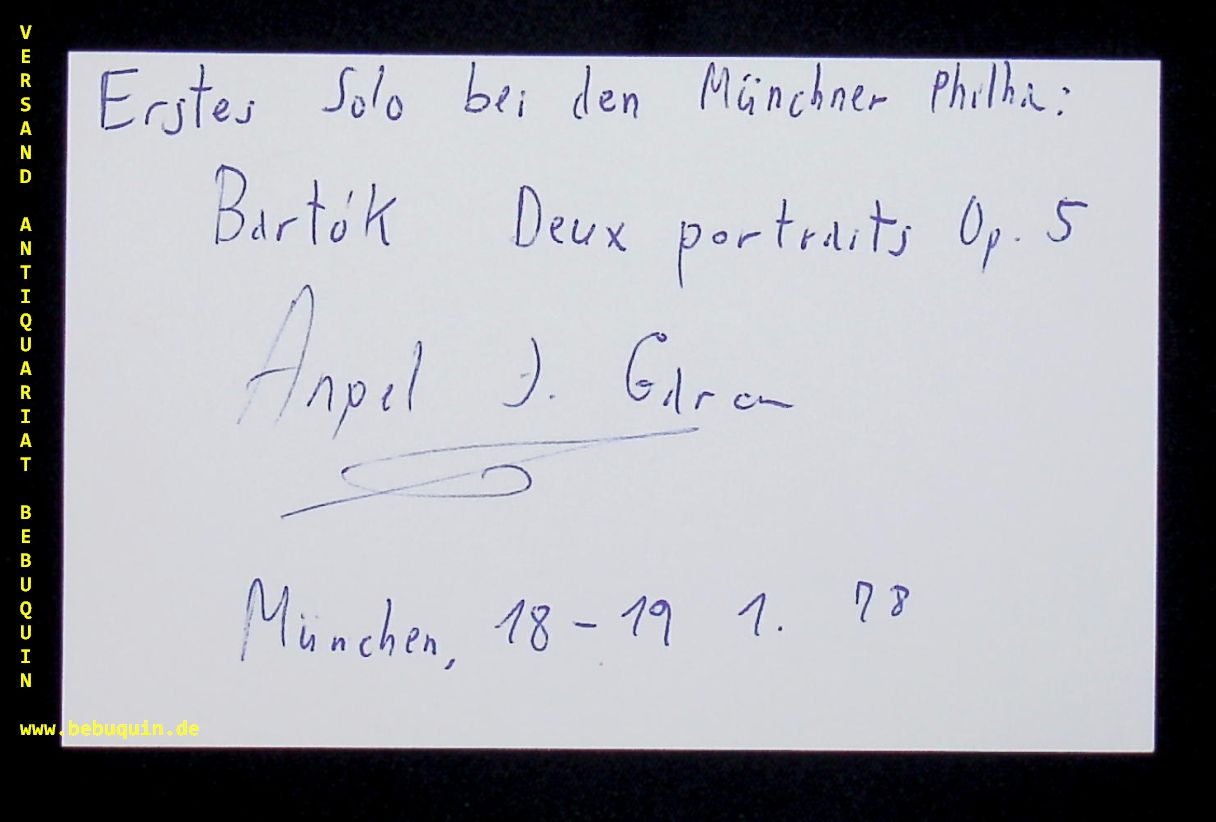 VERSAND ANTIQUARIAT BEBUQUIN
Erstes Solo bei den Münchner Philh.:
Bartók Deux portraits Op. 5
Angel J. G
München, 18-19 1. 78
www.bebuquin.de